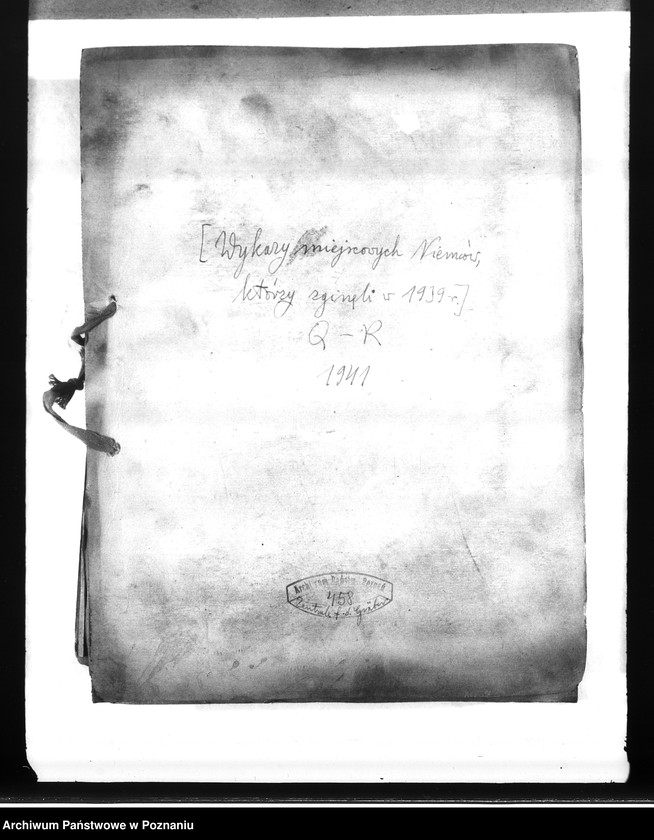 [Wykazy miejscowych Niemców,
którzy zginęli w 1939 r.]
Q – R
1941
Archiwum Państw. Poznań
458
Zentrale f. d. Gräber
Archiwum Państwowe w Poznaniu